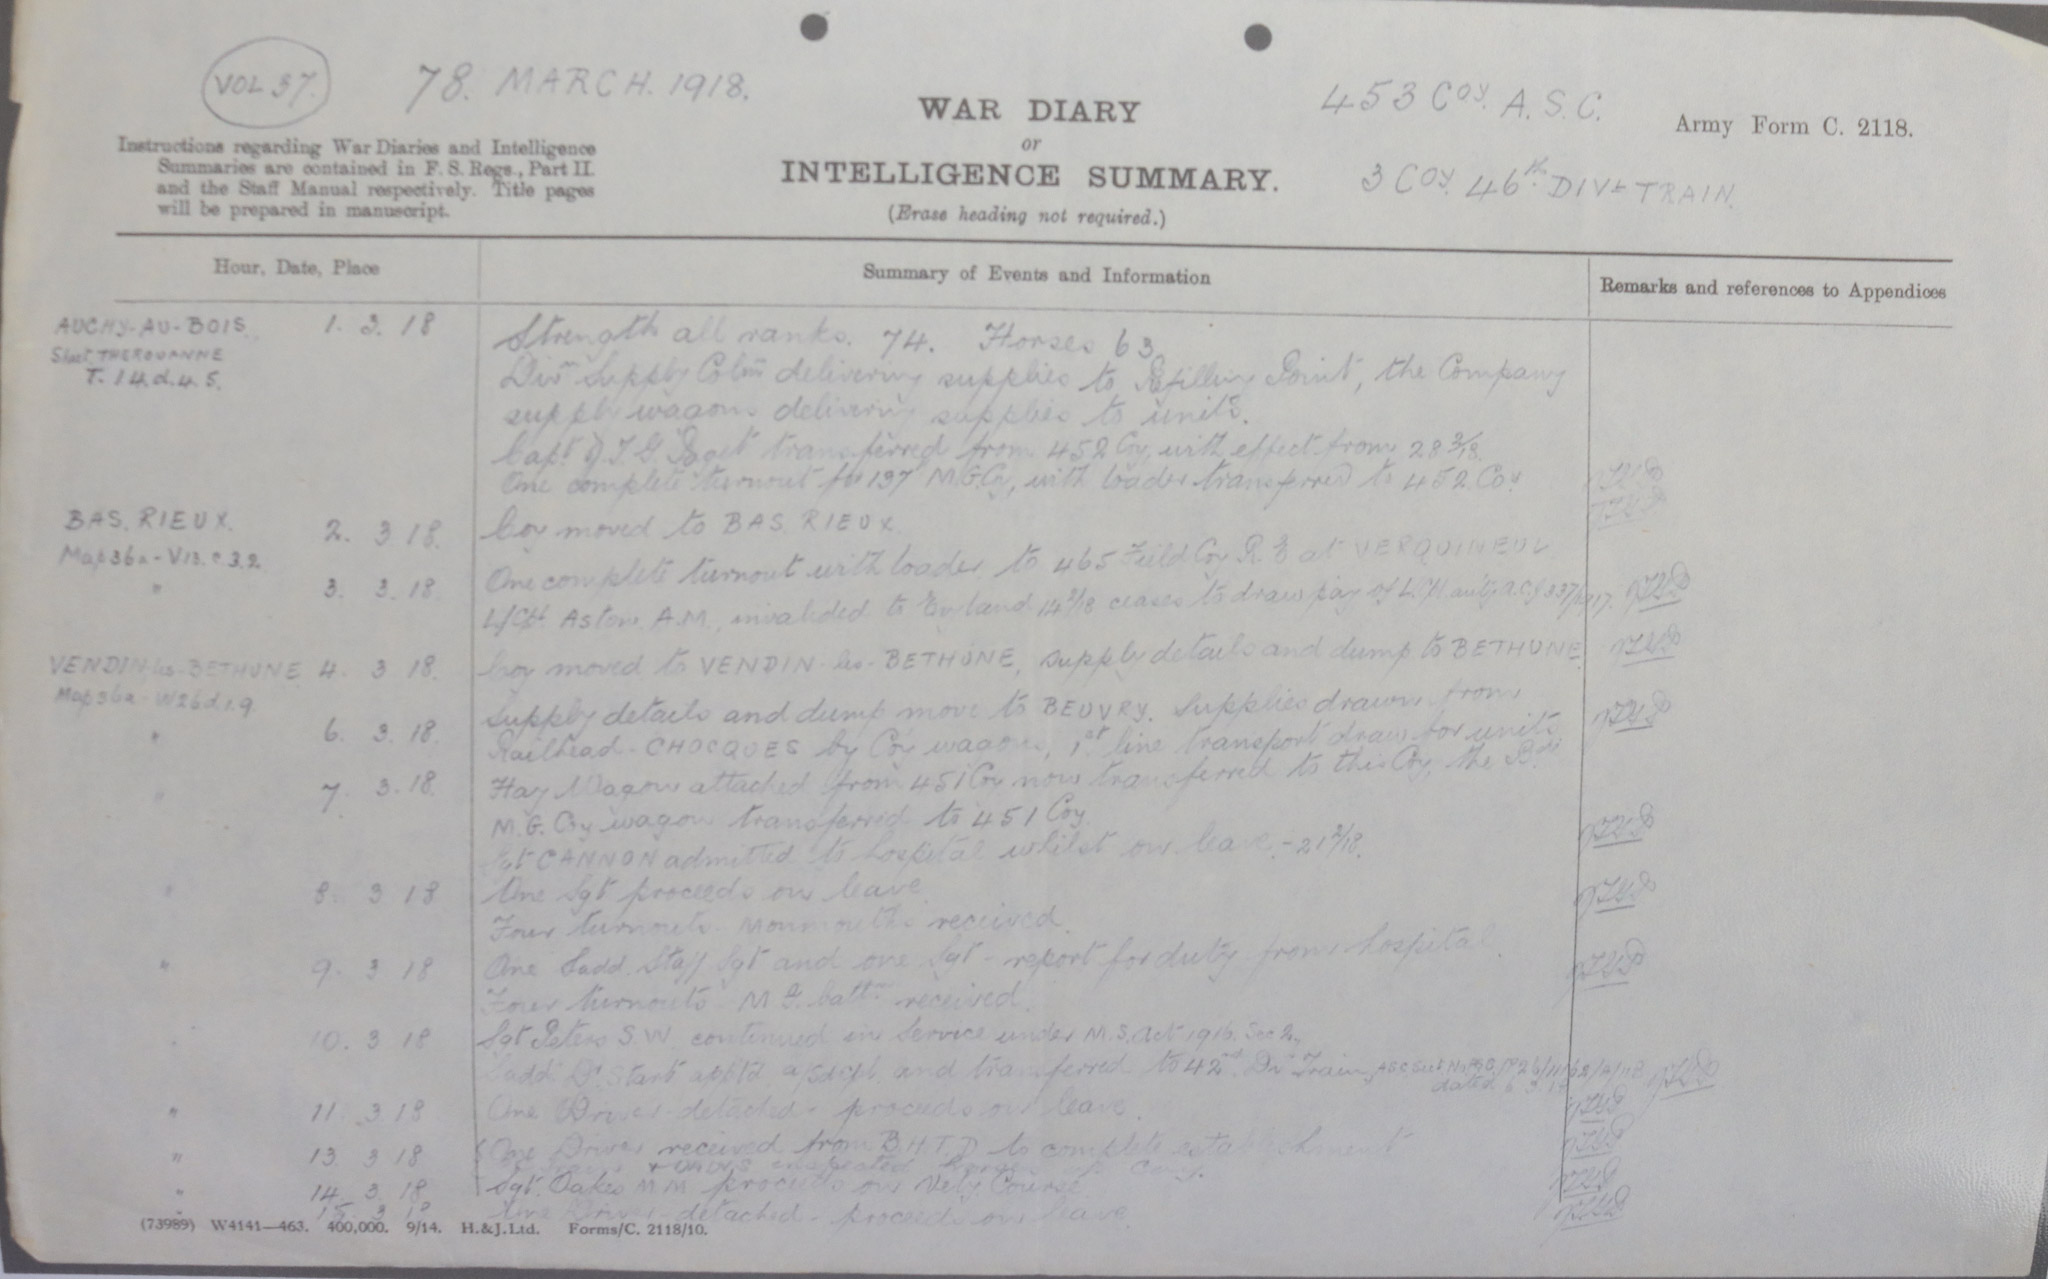 VOL 37.
78. MARCH. 1918.
WAR DIARY
or
INTELLIGENCE SUMMARY.
(Erase heading not required.)
453 Coy. A. S. C.
3 Coy. 46th DIVL TRAIN.
Army Form C. 2118.
Instructions regarding War Diaries and Intelligence
Summaries are contained in F. S. Regs., Part II.
and the Staff Manual respectively. Title pages
will be prepared in manuscript.
Hour, Date, Place
Summary of Events and Information
Remarks and references to Appendices
AUCHY-AU-BOIS 1. 3. 18 Strength all ranks. 74. Horses 63.
Sheet THEROUANNE
T. 14.d.4.5.
Divn Supply Colmn delivering supplies to Refilling Point, the Company
supply wagons delivering supplies to units.
Capt transferred from 452 Coy, with effect from 28
One complete turnout for 137 M.G.Coy, with loader transferred to 452 Coy
BAS. RIEUX. 2. 3 18. Coy moved to BAS. RIEUX.
Map 36a - V13.c.3.2
One complete turnout with loader to 465 Field Coy R.E at VERQUINEUL
" 3. 3. 18 L/Cpl. Aston A.M., invalided to England 14/2/18 ceases to draw pay of L.Cpl
VENDIN-les-BETHUNE 4. 3 18. Coy moved to VENDIN-les-BETHUNE, supply details and dump to BETHUNE
Map 36a - W26d.1.9
" 6. 3. 18. Supply details and dump move to BEUVRY. Supplies drawn from
Railhead - CHOCQUES by Coy wagons, 1st line transport draw for units.
" 7. 3. 18. Hay Wagon attached from 451 Coy now transferred to this Coy, the Bde
M.G. Coy wagon transferred to 451 Coy.
CANNON admitted to hospital whilst on leave - 21/2/18.
" 8. 3 18 One Sgt proceeds on leave.
Four turnouts - Monmouths received.
" 9. 3 18 One Sadd. Staff Sgt and one Sgt - report for duty from hospital.
Four turnouts - M G. Battn received.
10. 3 18 Sgt Peters S.W. continued in Service under M.S. Act 1916. Sec 2.
Sadd. Dr Start and transferred to 42nd Div Train
dated 6 3 18
" 11 . 3 18 One Driver - detached - proceeds on leave.
" 13 3 18 One Driver received from B.H.T.D to complete establishment
+ DADVS inspected horses
" 14. 3. 18 Sgt. Oakes M M proceeds on Vety Course
" 15. 3 18 One Driver - detached - proceeds on leave.
(73989) W4141—463. 400,000. 9/14. H.&J.Ltd. Forms/C. 2118/10.